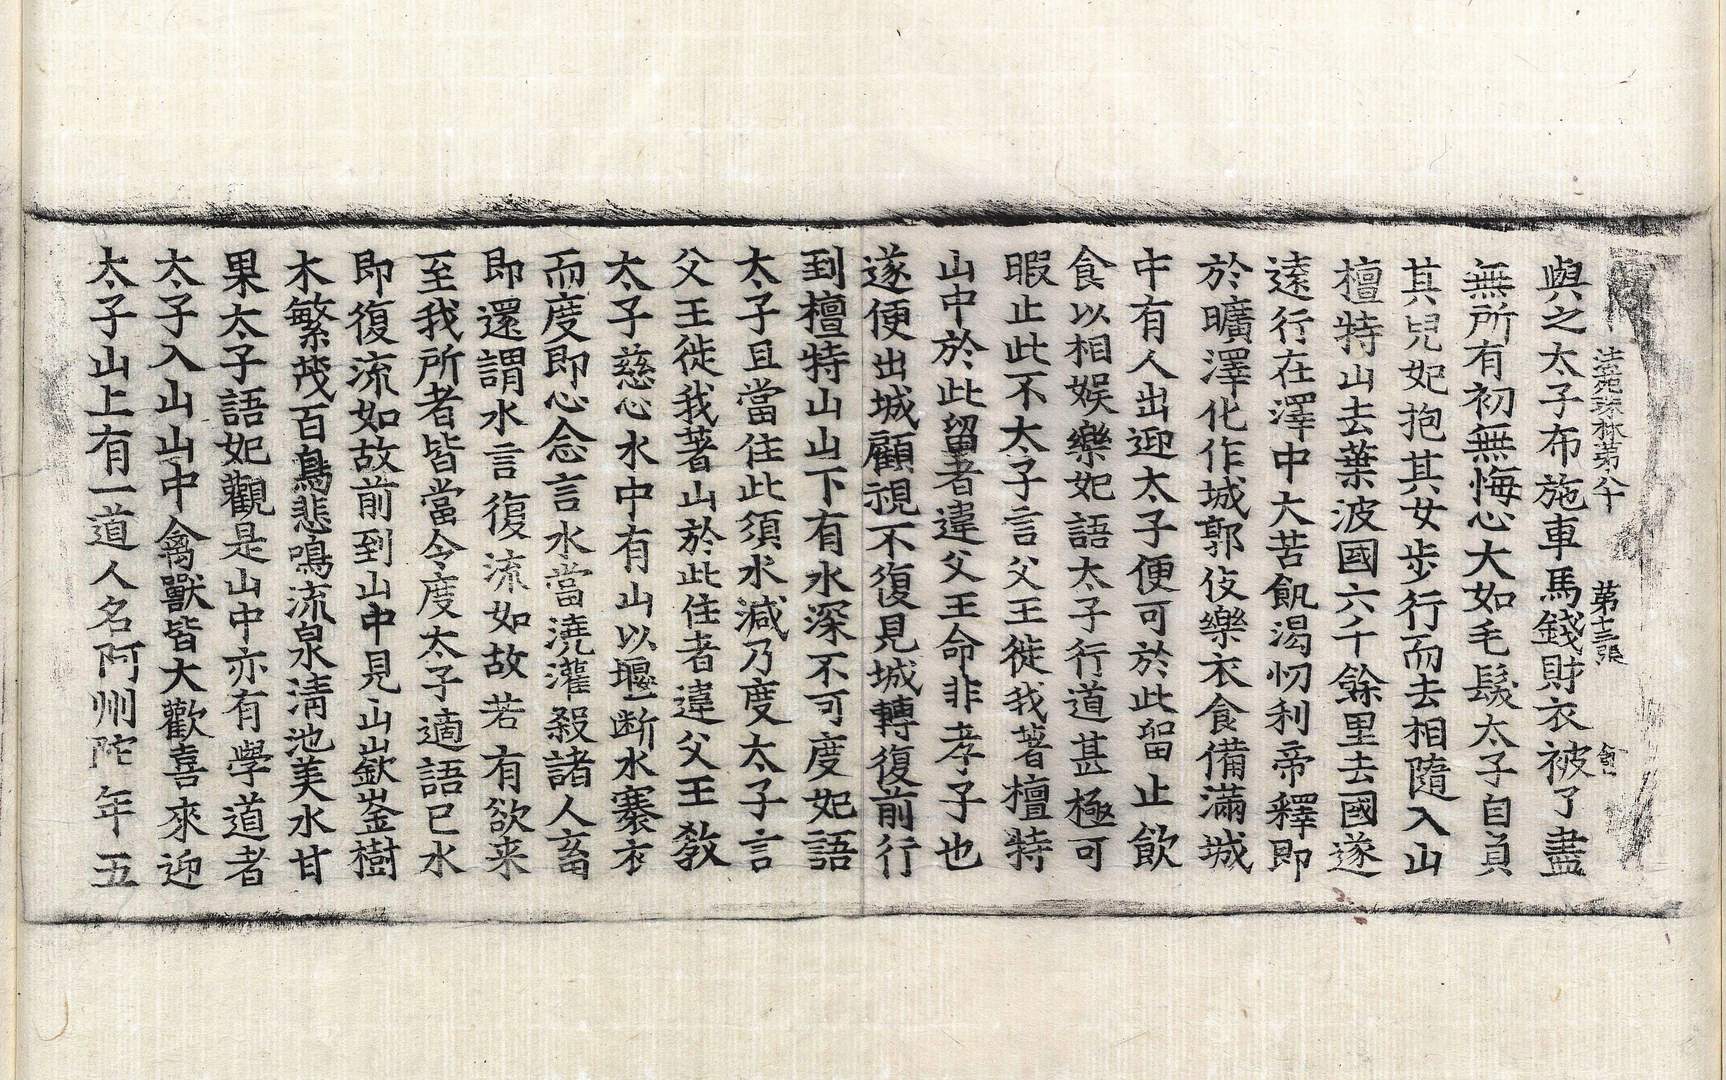 法苑珠林第八十 第十三張
與之太子布施車馬錢財衣被了盡
無所有初無悔心大如毛髮太子自負
其兒妃抱其女步行而去相隨入山
檀特山去葉波國六千餘里去國遂
遠行在澤中大苦飢渴忉利帝釋即
於曠澤化作城郭伎樂衣食備滿城
中有人出迎太子便可於此留止飲
食以相娛樂妃語太子行道甚極可
暇止此不太子言父王徙我著檀特
山中於此留者違父王命非孝子也
遂便出城顧視不復見城轉復前行
到檀特山山下有水深不可度妃語
太子且當住此須水減乃度太子言
父王徙我著山於此住者違父王教
太子慈心水中有山以堰断水褰衣
而度即心念言水當澆灌殺諸人畜
即還謂水言復流如故若有欲来
至我所者皆當令度太子適語已水
即復流如故前到山中見山嶔崟樹
木繁茂百鳥悲鳴流泉清池美水甘
果太子語妃觀是山中亦有學道者
太子入山山中禽獸皆大歡喜來迎
太子山上有一道人名阿州陀年五